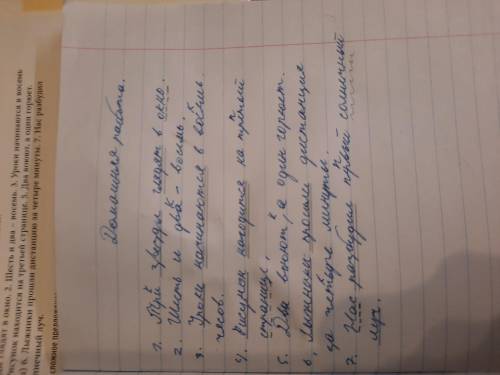 глядят в окно. 2. Шесть и два – восемь. 3. Уроки начинаются в восемь
исунок находится на третьей странице. 5. Два воюют, а один горюет.
6. Лыжники прошли дистанцию за четыре минуты. 7. Нас разбудил
нечный луч.
Домашняя работа.
1. Три звезды глядят в окно.
2. Шесть и два – восемь.
3. Уроки начинаются в восемь
часов.
4. Рисунок находится на третьей
странице.
5. Два воюют, а один горюет.
6. Лыжники прошли дистанцию
за четыре минуты.
7. Нас разбудил первый солнечный
луч.